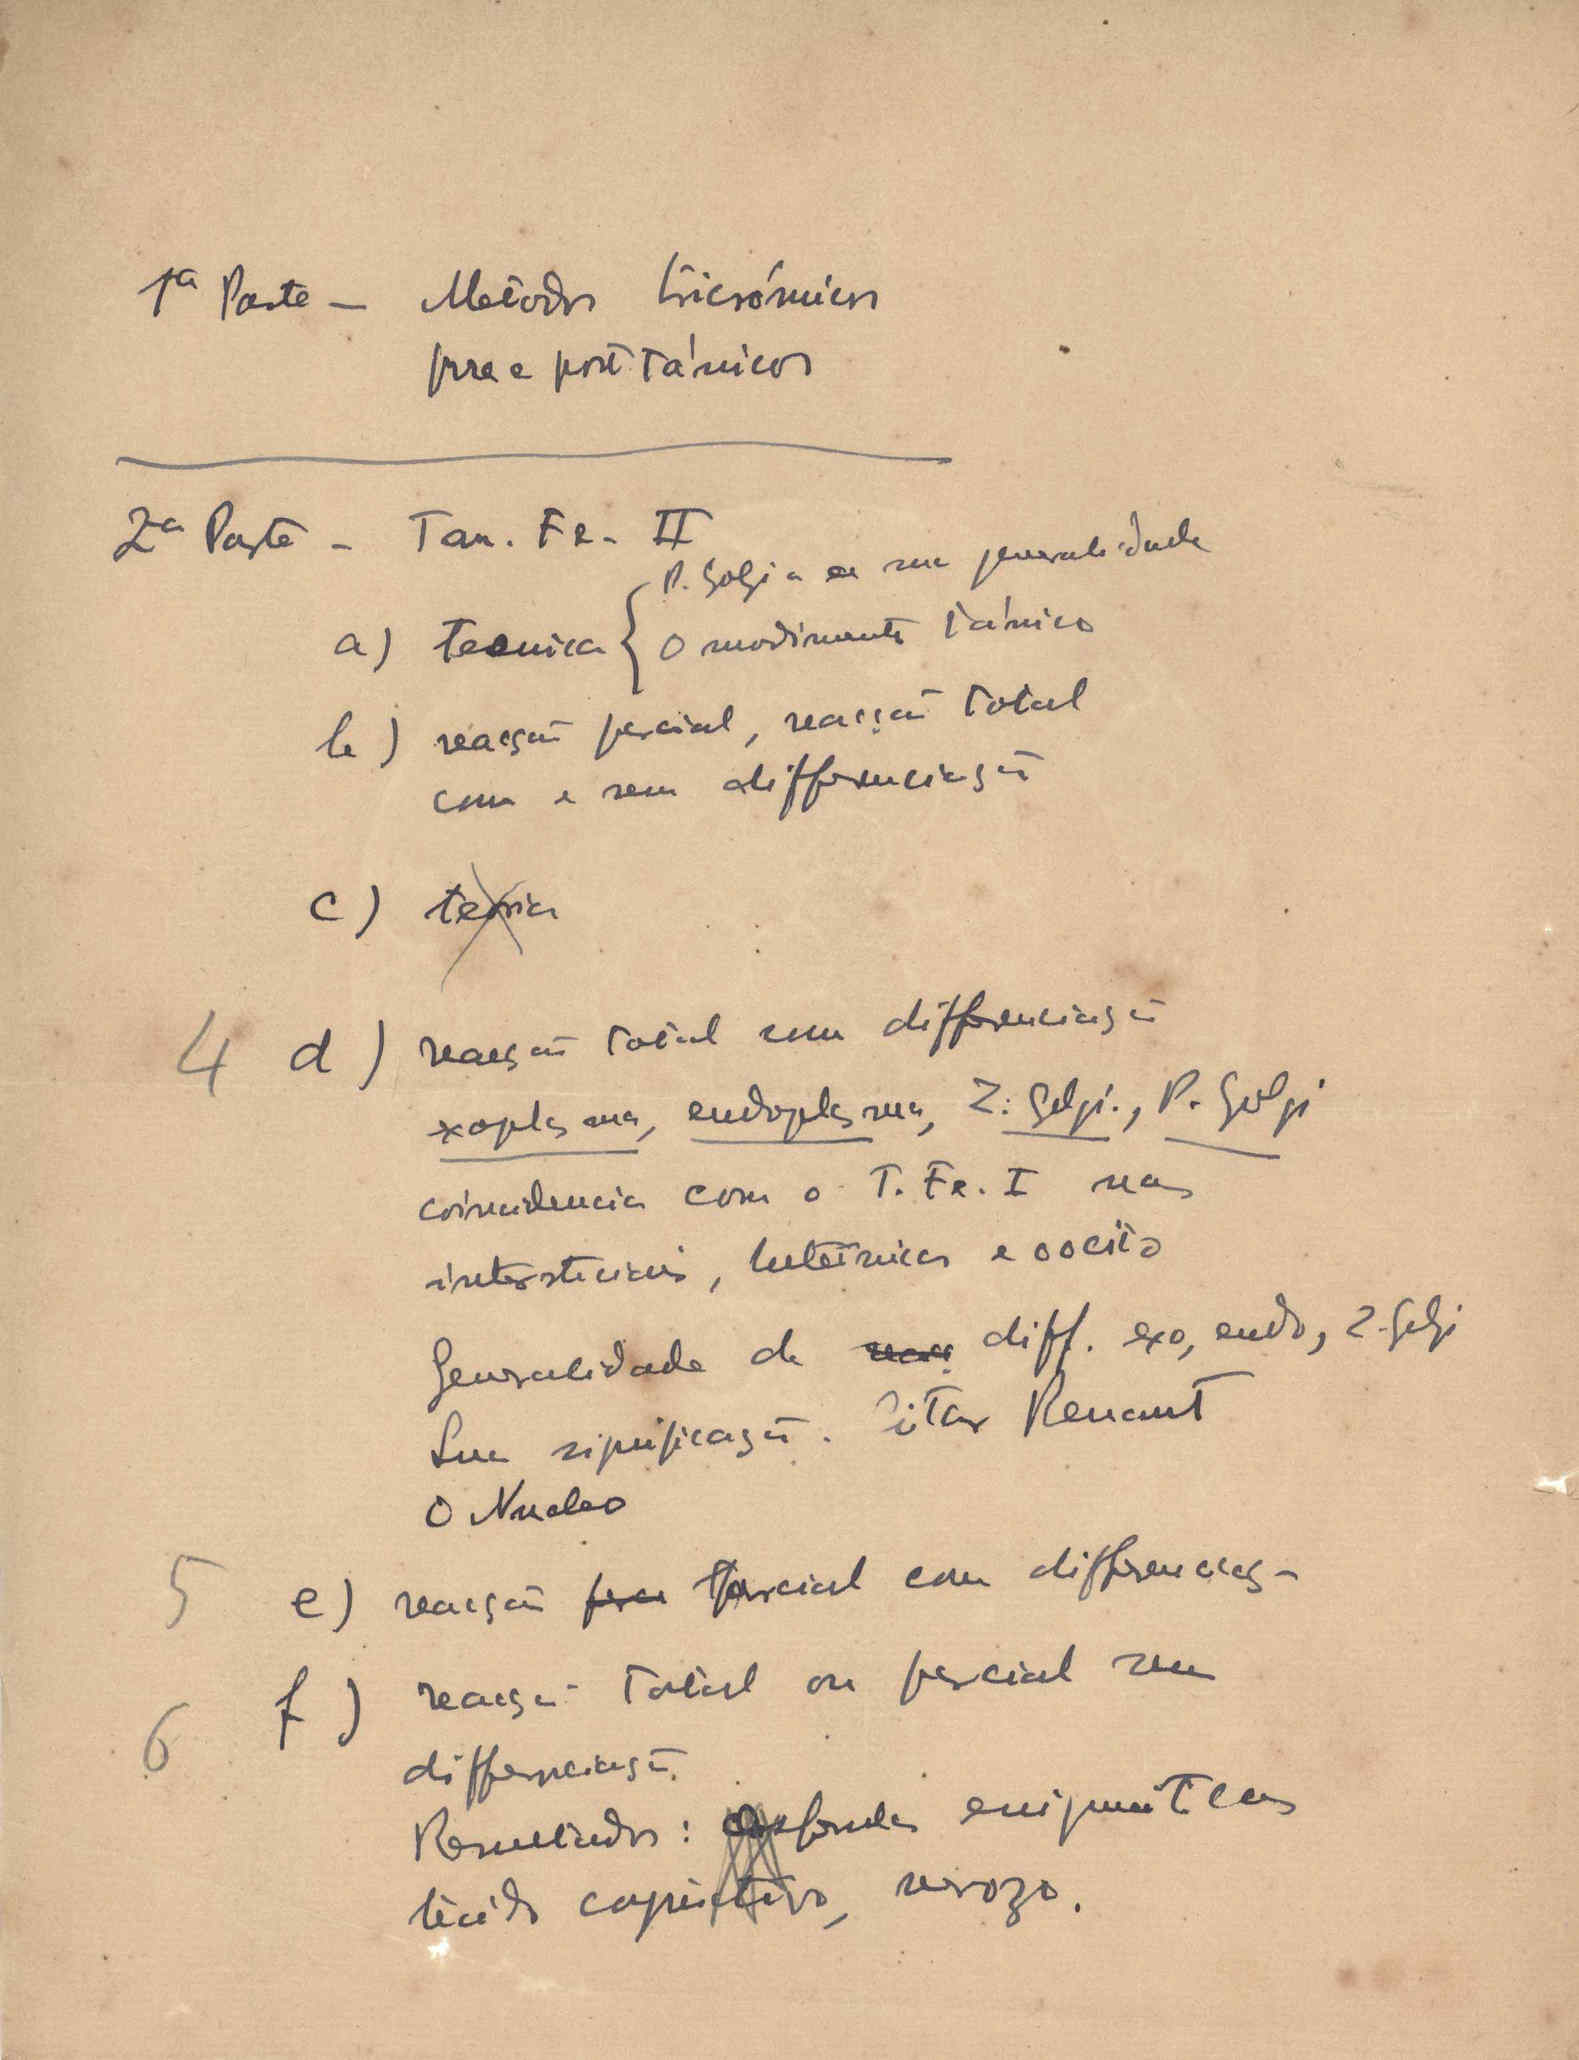 1ª Parte – Metodos tricrómicos
pre e post tánicos
2ª Parte – Tan. Fe. II
P. Golgi e a sua generalidade
a) tecnica { O mordimento tánico
b) reacção parcial, reacção total
com e sem differenciação
c) teoria
4 d) reacção total com differenciação
exoplasma, endoplasma, Z. Golgi., P. Golgi
coincidencia com o T. Fe. I nas
intersticiais, luteinicas e oocito
Generalidade da diff. exo, endo, Z. Golgi
Sua significação. Citar Renaut
O Nucleo
5 e) reacção parcial com differenciaç–
6 f) reacção total ou parcial sem
differenciação.
Resultados: enigmaticas
tecido conjuntivo, nervozo.